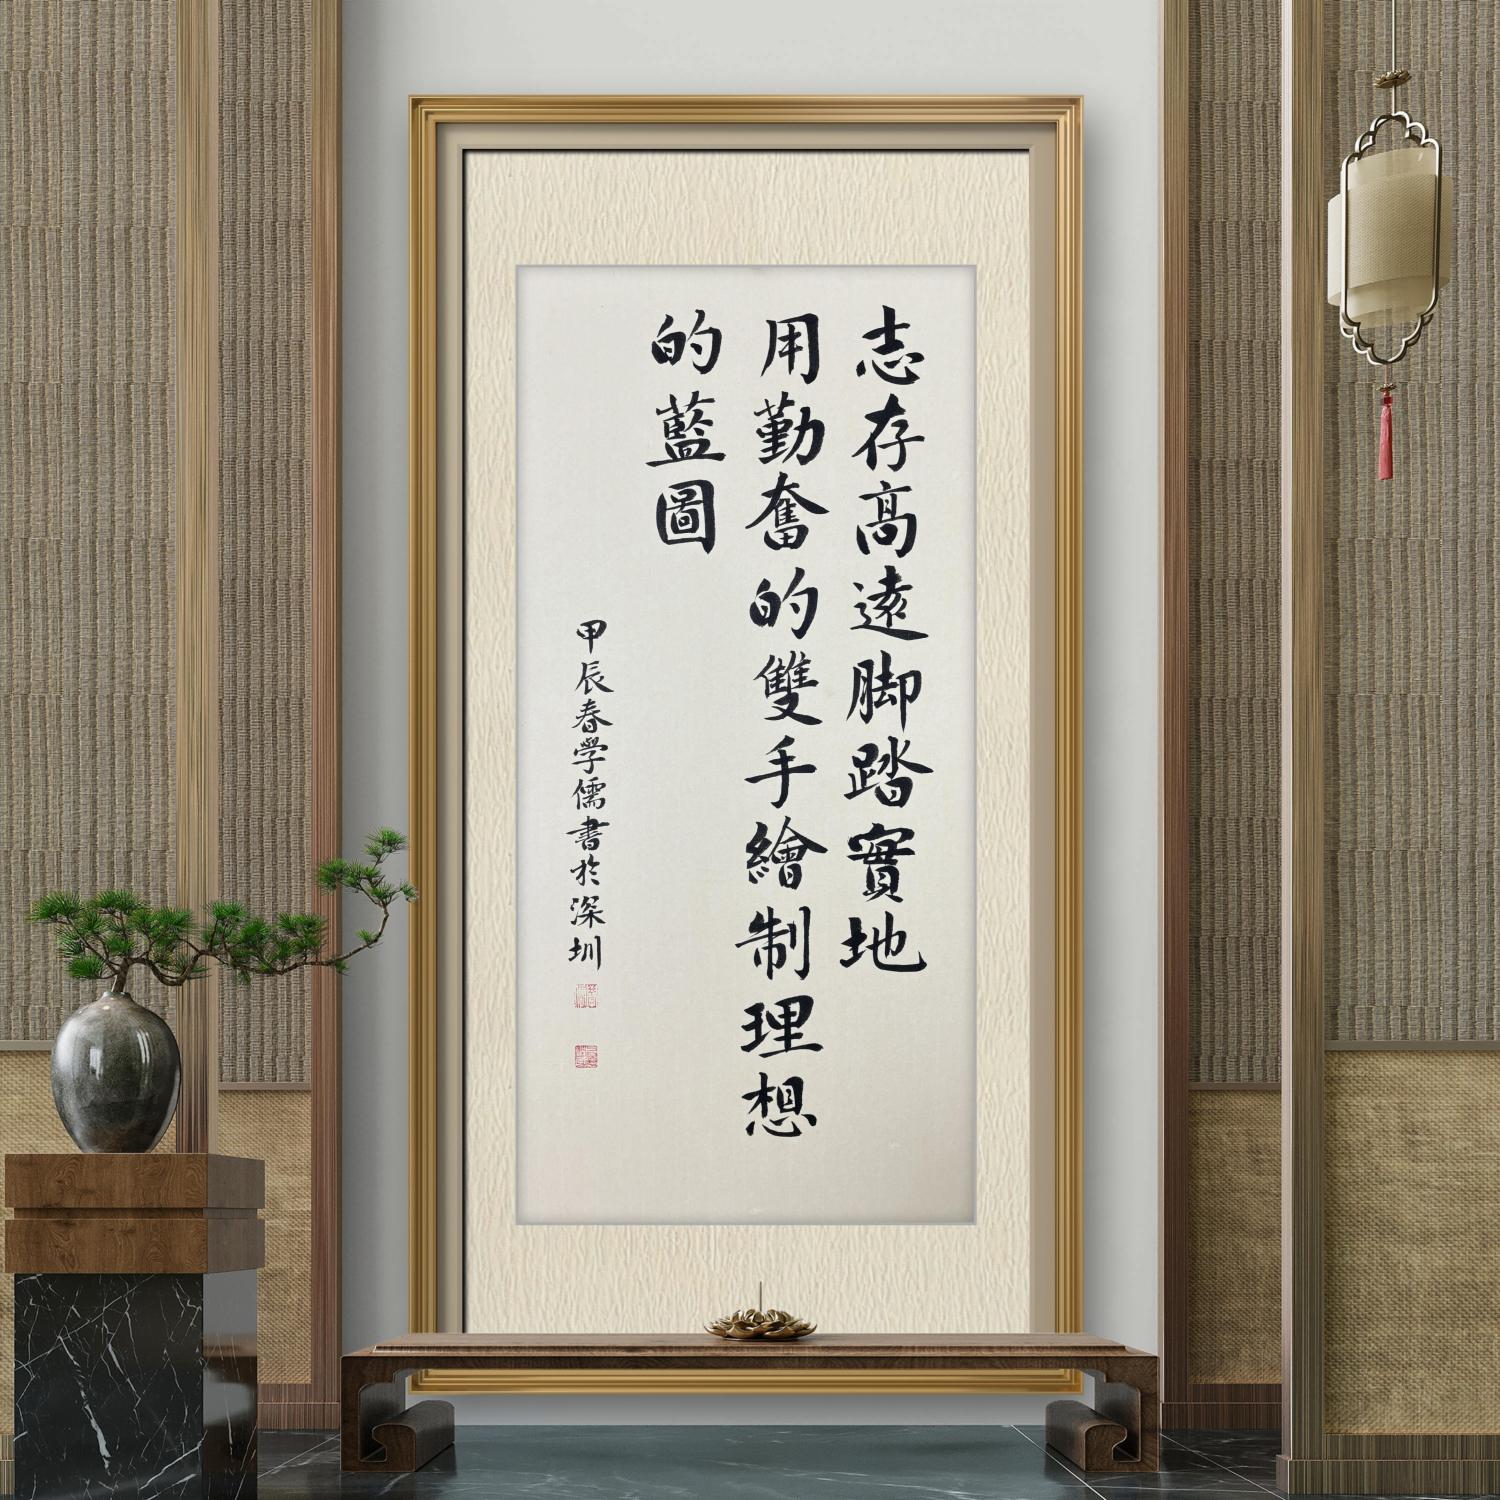 志存高遠脚踏實地
用勤奮的雙手繪制理想
的藍圖
甲辰春学儒書於深圳